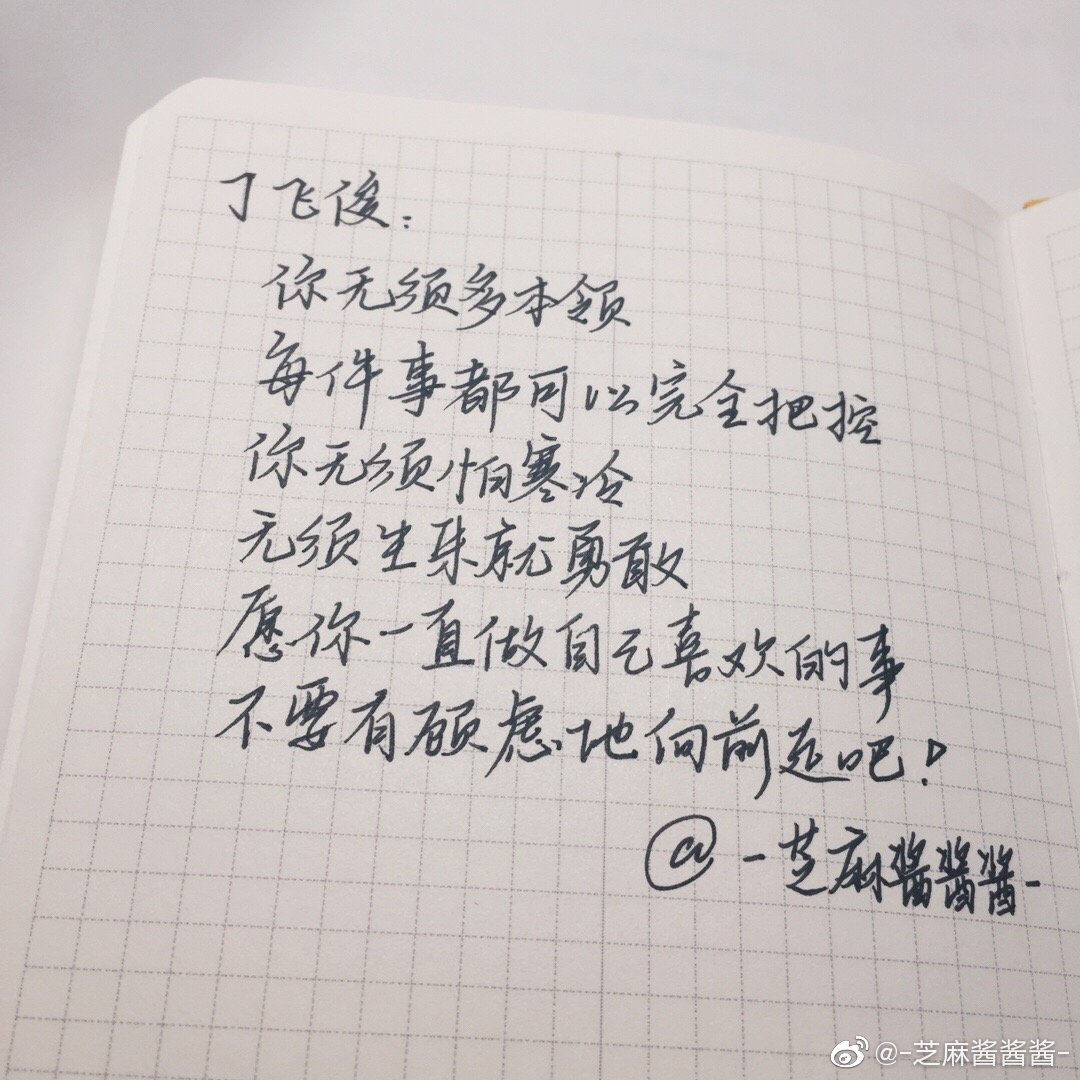 丁飞俊:
你无须多本领
每件事都可以完全把控
你无须怕寒冷
无须生来就勇敢
愿你一直做自己喜欢的事
不要有顾虑地向前走吧!
@-芝麻酱酱酱-
@-芝麻酱酱酱-